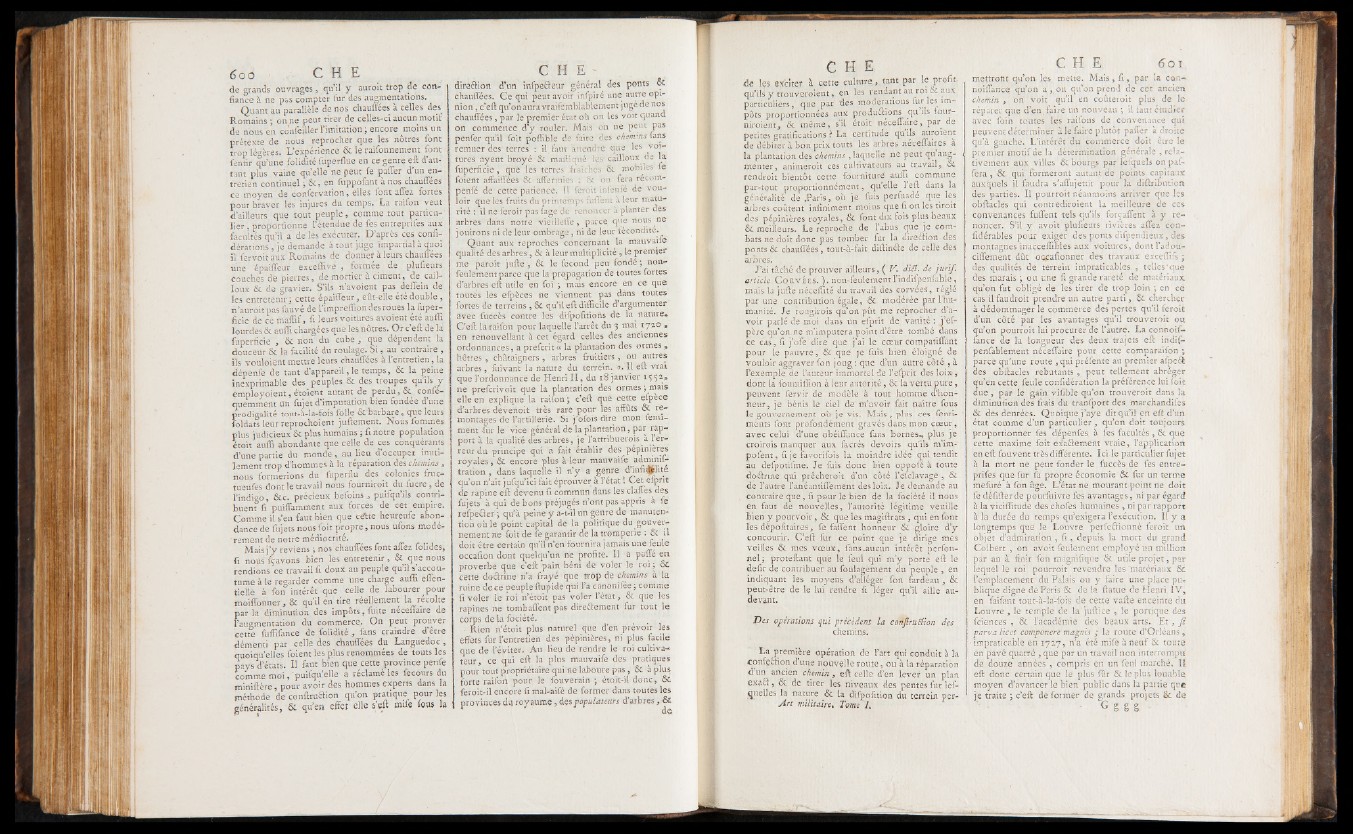 600 C H E
de grands ouvrages, qu'il y auroit trop de con-
fiance à ne pas compter sur des augmentations.
Quant au parallèle de nos chaussées à celles des
Romains ; on ne peut tirer de celles-ci aucun motif
de nous en conseiller l'imitation ; encore moins un
prétexte de nous reprocher que les nôtres sont
trop légères. L'expérience & le raisonnement font
sentir qu'une solidité superflue en ce genre est d'au-
tant plus vaine qu'elle ne peut se passer d'un en-
tretien continuel ; &, en supposant à nos chaussées
ce moyen de conservation, elles sont assez fortes
pour braver les injures du temps. La raison veut
d'ailleurs que tout peuple, comme tout particu-
lier, proportionne l'étendue de ses entreprises aux
facultés qu'il a de les exécuter. D'après ces consi-
dérations, je demande à tout juge impartial à quoi
il servoit aux Romains de donner à leurs chaussées
une épaisseur excessive, formée de plusieurs
couches de pierres, de mortier à ciment, de cail-
loux & de gravier. S'ils n'avoient pas dessein de
les entretenir ; cette épaisseur, eût-elle été double,
n'auroit pas sauvé de l'impression des roues la super-
ficie de ce massif, si leurs voitures avoient été aussi
lourdes & aussi chargées que les nôtres. Or c'est de la
superficie, & non du cube, que dépendent la
douceur & la facilité du roulage. Si, au contraire,
ils vouloient mettre leurs chaussées à l'entretien, la
dépense de tant d'appareil, le temps, & la peine
inexprimable des peuples & des troupes qu'ils y
employoient, étoient autant de perdu, & consé-
quemment un sujet d'imputation bien fondée d'une
prodigalité tout-à-la-fois folle & barbare, que leurs
soldats leur reprochoient justement. Nous sommes
plus judicieux & plus humains ; si notre population
étoit aussi abondante que celle de ces conquérants
d'une partie du monde, au lieu d'occuper inuti-
lement trop d'hommes à la réparation des chemins,
nous formerions du superflu des colonies fruc-
tueuses dont le travail nous fourniroit du sucre, de
l'indigo, &c. précieux besoins, puisqu'ils contri-
buent si puissamment aux forces de cet empire.
Comme il s'en faut bien que cette heureuse abon-
dance de sujets nous soit propre, nous usons modé-
rement de notre médiocrité.
Mais j'y reviens, nos chaussées sont assez solides,
si nous sçavons bien les entretenir, & que nous
rendions ce travail si doux au peuple qu'il s'accou-
tume à le regarder comme une charge aussi essen-
tielle à son intérêt que celle de labourer pour
moissonner, & qu'il en tire réellement la récolte
par la diminution des impôts, suite nécessaire de
l'augmentation du commerce. On peut prouver
cette suffisance de solidité, sans craindre d'être
démenti par celle des chaussées du Languedoc,
quoiqu'elles soient les plus renommées de tous les
pays d'états. Il faut bien que cette province pense
comme moi, puisqu'elle a réclamé les secours du
ministère, pour avoir des hommes experts dans la
méthode de construction qu'on pratique pour les
généralités, & qu'en effet elle s'est mise sous la
C H E
direction d'un inspecteur général des ponts &
chaussées. Ce qui peut avoir inspiré une autre opi-
nion, c'est qu'on aura vraisemblablement jugé de nos
chaussées, par le premier état où on les voit quand
on commence d'y rouler. Mais on ne peut pas
penser qu'il soit possible de faire des chemins sans
remuer des terres : il faut attendre que les voi-
tures ayent broyé & mastiqué les cailloux de la
superficie, que les terres fraîches & mobiles se
soient affaissées & affermies ; & on sera récom-
pensé de cette patience. Il seroit insensé de vou-
loir que les fruits du printemps fussent à leur matu-
rité : il ne seroit pas sage de renoncer à planter des
arbres dans notre vieillesse, parce que nous ne
jouirons ni de leur ombrage, ni de leur fécondité.
Quant aux reproches concernant la mauvaise
qualité des arbres, & à leur multiplicité, le premier
me paroit juste, & le second peu fondé ; non-
seulement parce que la propagation de toutes sortes
d'arbres est utile en soi ; mais encore en ce que
toutes les espèces ne viennent pas dans toutes
sortes de terreins, & qu'il est difficile d'argumenter
avec succès contre les dispositions de la nature.
C'est la raison pour laquelle l'arrêt du 3 mai 1720 «
en renouvellant à cet égard celles des anciennes
ordonnances, a prescrit « la plantation des ormes,
hêtres, châtaigners, arbres fruitiers, ou autres
arbres, suivant la nature du terrein. ». Il est vrai
que l'ordonnance de Henri II, du 18 janvier 1552,
ne prescrivoit que la plantation des ormes ; mais
elle en explique la raison ; c'est que cette espèce
d'arbres devenoit très rare pour les affûts & re-
montages de l'artillerie. Si j'osois dire mon senti-
ment sur le vice général de la plantation, par rap-
port à la qualité des arbres, je l'attribuerois à l'er-
reur du principe qui a fait établir des pépinières
royales, & encore plus à leur mauvaise adminis-
tration, dans laquelle il n'y a genre d'infidélité
qu'on n'ait jusqu'ici fait éprouver à l'état ! Cet esprit
de rapine est devenu si commun dans les classes des
sujets à qui de bons préjugés n'ont pas appris à se
respecter ; qu'à peine y a-t-il un genre de manuten-
tion où le point capital de la politique du gouver-
nement ne soit de se garantir de la tromperie ; & il
doit être certain qu'il n'en fournira jamais une seule
occasion dont quelqu'un ne profite. Il a passé en
proverbe que c'est pain béni de voler le roi ; &
cette doctrine n'a frayé que trop de chemins à la
ruine de ce peuple stupide qui l'a canonisée ; comme
si voler le roi n'étoit pas voler l'état, & que les
rapines ne tombassent pas directement sur tout le
corps de la société.
Rien n'étoit plus naturel que d'en prévoir les
effets sur l'entretien des pépinières, ni plus facile
que de l'éviter. Au lieu de rendre le roi cultiva-
teur, ce qui est la plus mauvaise des pratiques
pour tout propriétaire qui ne laboure pas, & à plus
forte raison pour le souverain ; étoit-il donc, &
seroit-il encore si mal-aisé de former dans toutes les
provinces du royaume, des populateurs d'arbres, &
de
C H E
de les exciter à cette culture, tant par le profit
qu'ils y trouveroient, en les rendant au roi & aux
particuliers, que par des modérations sur les im-
pôts proportionnées aux productions qu'ils four-
niroient, & même, s'il étoit nécessaire, par de
petites gratifications ? La certitude qu'ils auroient
de débiter à bon prix touts les arbres nécessaires à
la plantation des chemins, laquelle ne peut qu'aug-
menter, animeroit ces cultivateurs au travail, &
rendroit bientôt cette fourniture aussi commune
par-tout proportionnément, qu'elle l'est dans la
généralité de Paris, où je suis persuadé que les
arbres coûtent infiniment moins que si on les tiroit
des pépinières royales, & sont dix fois plus beaux
& meilleurs. Le reproche de l'abus que je com-
bats ne doit donc pas tomber sur la direction des
ponts & chaussées, tout-à-fait distincte de celle des
arbres.
J'ai tâché de prouver ailleurs, ( V. dict. de jurisp.
article CORVÉES. ). non-seulement l'indispensable,
mais la juste nécessité du travail des corvées, réglé
par une contribution égale, & modérée par l'hu-
manité. Je rougirois qu'on pût me reprocher d'a-
voir parlé de moi dans un esprit de vanité ; j'es-
père qu'on ne m'imputera point d'être tombé dans
ce cas, si j'ose dire que j'ai le cœur compatissant
pour le pauvre, & que je suis bien éloigné de
vouloir aggraver son joug : que d'un autre côté, à
l'exemple de l'auteur immortel de l'esprit des loix,
dont la soumission à leur autorité, & la vertu pure,
peuvent servir de modèle à tout homme d'hon-
neur, je bénis le ciel de m'avoir fait naître sous
le gouvernement où je vis. Mais, plus ces senti-
ments sont profondément gravés dans mon cœur,
avec celui d'une obéissance sans bornes, plus je
croirois manquer aux sacrés devoirs qu'ils m'im-
posent, si je favorisois la moindre idée qui tendit
au despotisme. Je suis donc bien opposé à toute
doctrine qui prêcheroit d'un côté l'esclavage, &
de l'autre l'anéantissement des loix. Je demande au
contraire que, si pour le bien de la société il nous
en faut de nouvelles, l'autorité légitime veuille
bien y pourvoir, & que les magistrats, qui en sont
les dépositaires, se fassent honneur & gloire d'y
concourir. C'est sur ce point que je dirige mes
veilles & mes vœux, sans aucun intérêt person-
nel ; protestant que le seul qui m'y porte est le
desir de contribuer au soulagement du peuple, en
indiquant les moyens d'alléger son fardeau, &
peut-être de le lui rendre si léger qu'il aille au-
devant.
Des opérations qui précèdent la construction des
chemins.
La première opération de l'art qui conduit à la
confection d'une nouvelle route, ou à la réparation
d'un ancien chemin, est celle d'en lever un plan
exact, & de tirer les niveaux des pentes sur les-
quelles la nature & la disposition du terrein per-
Art militaire. Tome I.
C H E 601
mettront qu'on les mette. Mais, si, par la con-
noissance qu'on a, ou qu'on prend de cet ancien
chemin, on voit qu'il en coûteroit plus de le
réparer que d'en faire un nouveau ; il faut étudier
avec soin toutes les raisons de convenance qui
peuvent déterminer à le faire plutôt passer à droite
qu'à gauche. L'intérêt du commerce doit être le
premier motif de la détermination générale, rela-
tivement aux villes & bourgs par lesquels on pas-
sera, & qui formeront autant de points capitaux
auxquels il faudra s'assujetir pour la distribution
des parties. Il pourroit néanmoins arriver que les
obstacles qui contrediroient la meilleure de ces
convenances fussent tels qu'ils forçassent à y re-
noncer. S'il y avoit plusieurs rivières assez con-
sidérables pour exiger des ponts dispendieux, des
montagnes inaccessibles aux voitures, dont l'adou-
cissement dût occasionner des travaux excessifs ;
des qualités de terrein impraticables, telles que
des marais ; ou une si grande rareté de matériaux
qu'on fut obligé de les tirer de trop loin ; en ce
cas il faudroit prendre un autre parti, & chercher
à dédommager le commerce des pertes qu'il feroit
d'un côté par les avantages qu'il trouveroit ou
qu'on pourroit lui procurer de l'autre. La connois-
sance de la longueur des deux trajets est indis-
pensablement nécessaire pour cette comparaison ;
parce qu'une route, qui présente au premier aspect
des obstacles rebutants, peut tellement abréger
qu'en cette seule considération la préférence lui soit
due, par le gain visible qu'on trouveroit dans la
diminution des frais du transport des marchandises
& des denrées. Quoique j'aye dit qu'il en est d'un
état comme d'un particulier, qu'on doit toujours
proportionner ses dépenses à ses facultés, & que
cette maxime soit exactement vraie, l'application
en est souvent très différente. Ici le particulier sujet
à la mort ne peut fonder le succès de ses entre-
prises que sur sa propre économie & sur un terme
mesuré à son âge. L'état ne mourant point ne doit
se désister de poursuivre ses avantages, ni par égard
à la vicissitude des choses humaines, ni par rapport
à la durée du temps qu'exigera l'exécution. Il y a
longtemps que le Louvre perfectionné seroit un
objet d'admiration, si, depuis la mort du grand
Colbert, on avoit seulement employé un million
par an à finir son magnifique & utile projet, par
lequel le roi pourroit revendre les matériaux &
l'emplacement du Palais ou y faire une place pu-
blique digne de Paris & de la statue de Henri IV,
en faisant tout-à-la-fois de cette vaste enceinte du
Louvre, le temple de la justice, le portique des
sciences, & l'académie des beaux arts. Et, si
parva licet componere magnis ; la route d'Orléans,
impraticable en 1727, n'a été mise à neuf & toute
en pavé quarré, que par un travail non interrompu
de douze années, compris en un seul marché. Il
est donc certain que le plus sûr & le plus louable
moyen d'avancer le bien public dans la partie que
je traite ; c'est de former de grands projets & de
G g g g